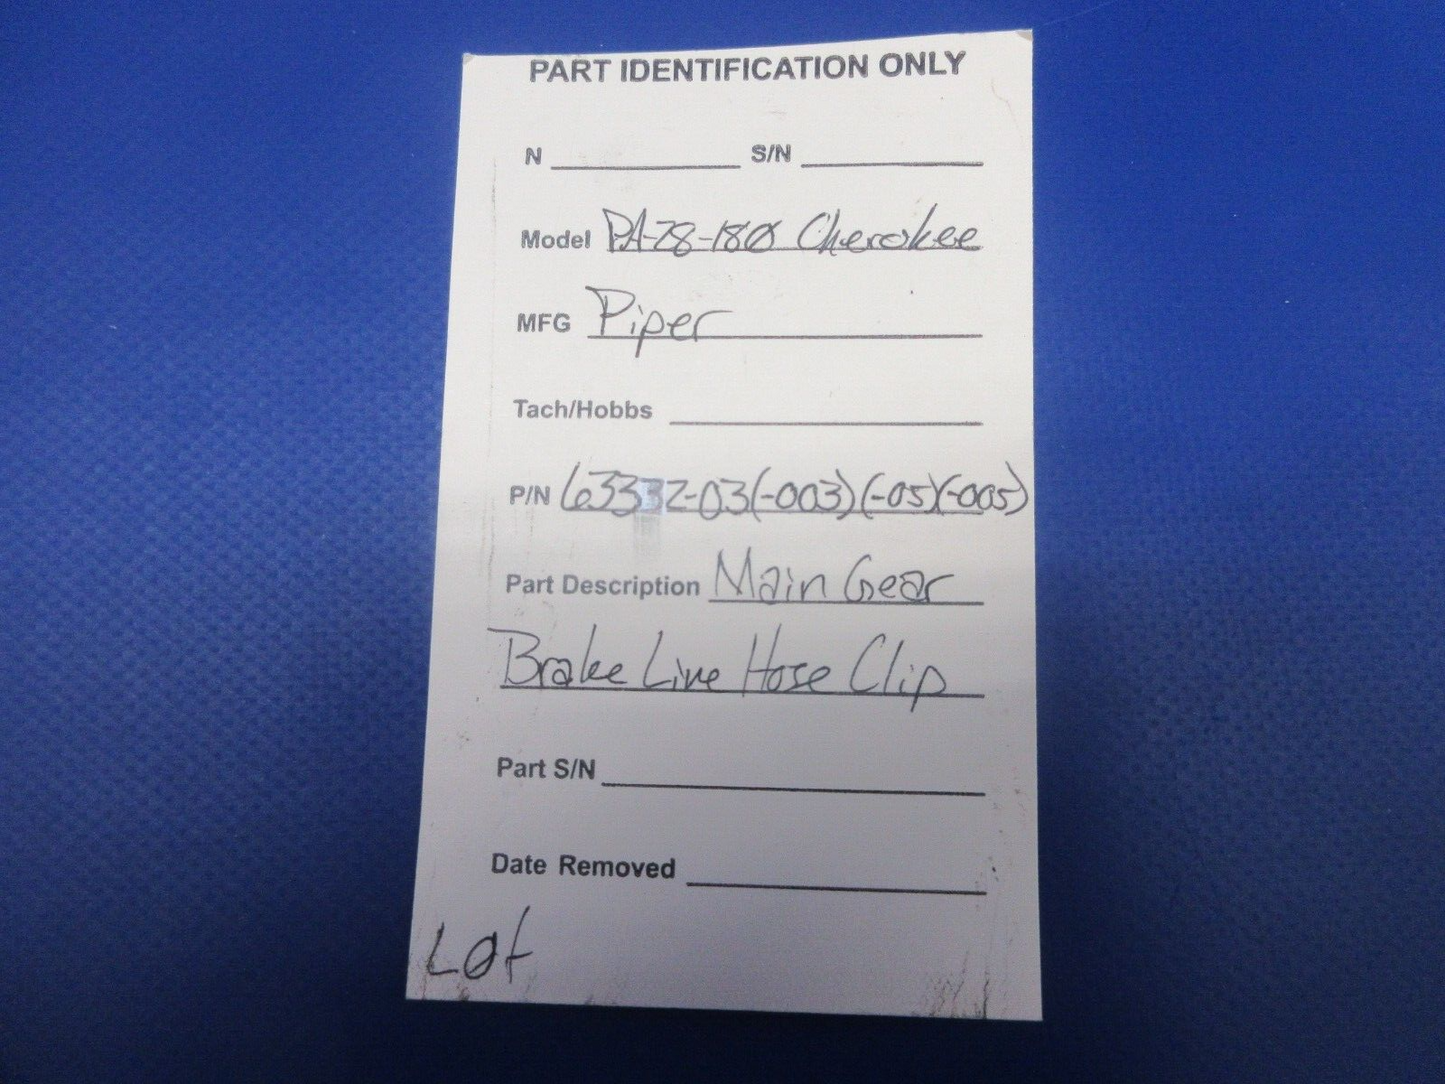 PART IDENTIFICATION ONLY
N S/N
Model PA-28-180 Cherokee
MFG Piper
Tach/Hobbs
P/N 63332-03(-003)(-05)(-005)
Part Description Main Gear
Brake Line Hose Clip
Part S/N
Date Removed
Lot